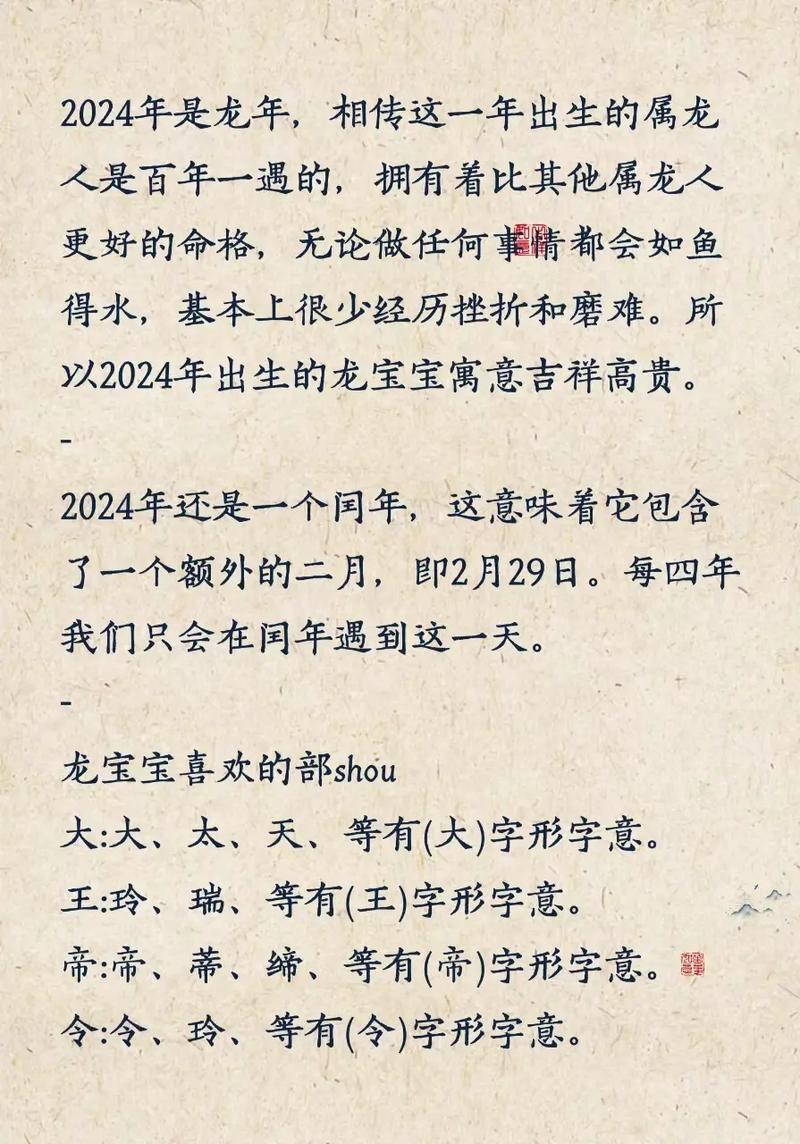 2024年是龙年，相传这一年出生的属龙
人是百年一遇的，拥有着比其他属龙人
更好的命格，无论做任何事情都会如鱼
得水，基本上很少经历挫折和磨难。所
以2024年出生的龙宝宝寓意吉祥高贵。
-
2024年还是一个闰年，这意味着它包含
了一个额外的二月，即2月29日。每四年
我们只会在闰年遇到这一天。
-
龙宝宝喜欢的部shou
大:大、太、天、等有(大)字形字意。
王:玲、瑞、等有(王)字形字意。
帝:帝、蒂、缔、等有(帝)字形字意。
令:令、玲、等有(令)字形字意。